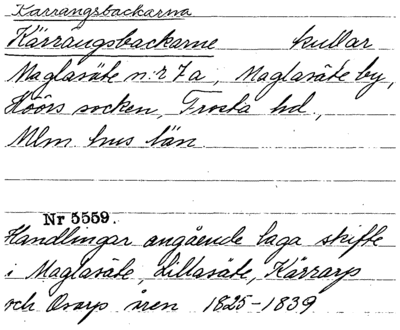 Kärrängsbackarna
Kärrängsbackarne kullar
Maglasäte n:r 7a, Maglasäte by,
Höörs socken, Frosta hd.,
Mlm hus län
Nr 5559.
Handlingar angående laga skifte
i Maglasäte, Lillasäte, Kärrarp
och Orarp åren 1825-1839